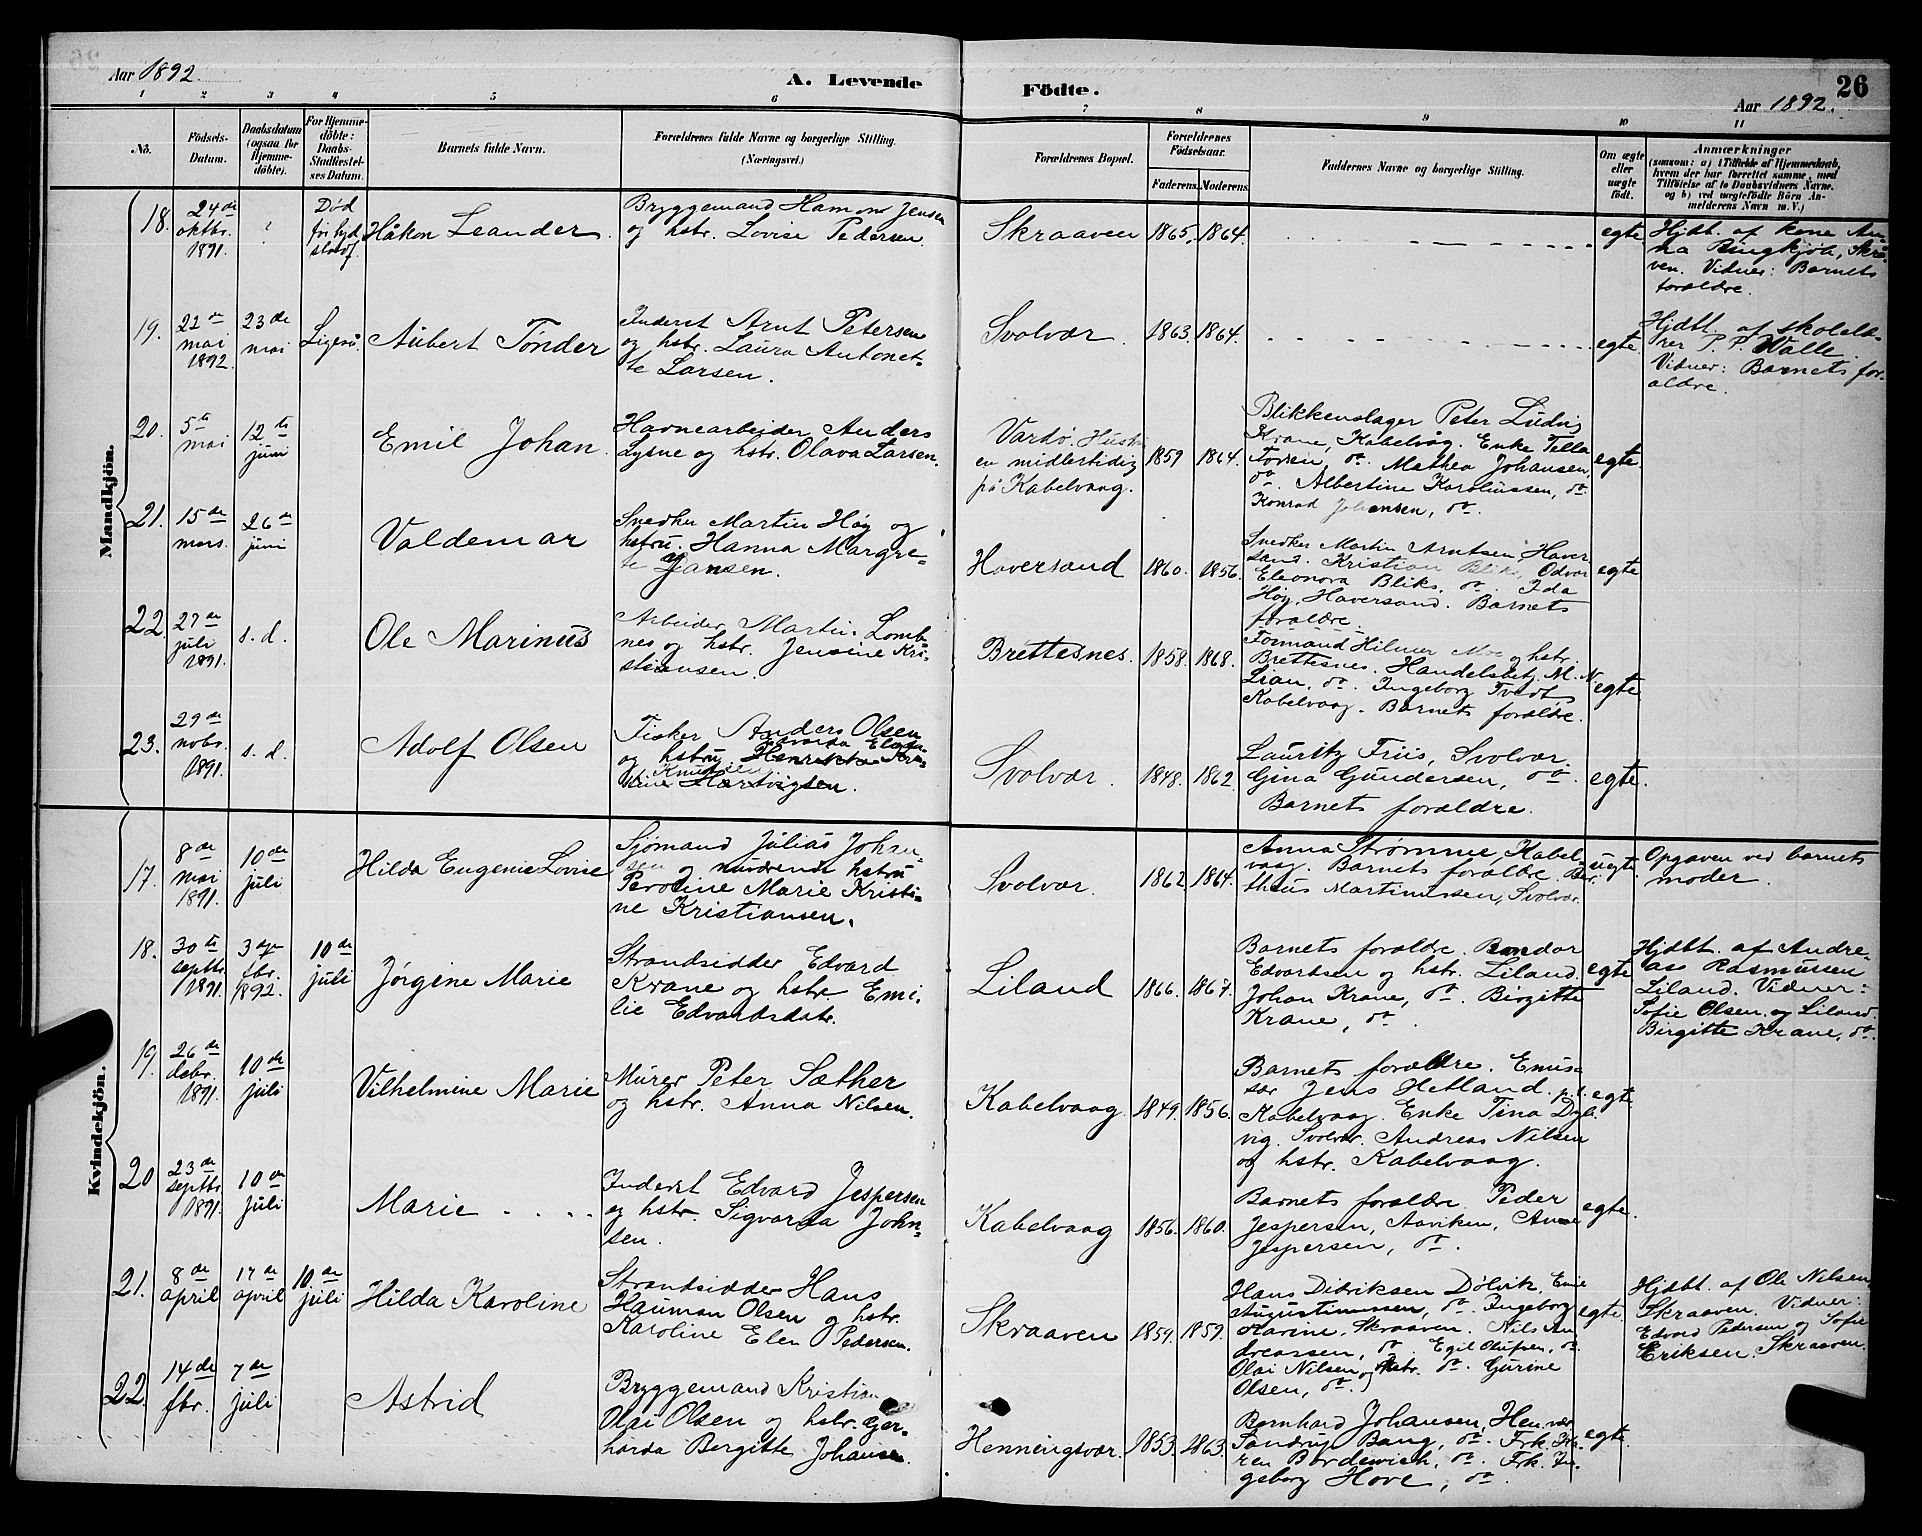 Aar 1892.
A. Levende
Födte.
26
Aar 1892.
1 2 3 4 5 6 7 8 9 10 11
No.
Födsels-
Datum.
Daabsdatum
(ogsaa for
Hjemme-
döbte).
For Hjemme-
döbte:
Daabs-
Stadfestel-
ses Datum.
Barnets fulde Navn.
Forældrenes fulde Navne og borgerlige Stilling.
(Næringsvei.)
Forældrenes Bopæl.
Forældrenes
Födselsaar.
Faderens. Moderens.
Faddernes Navne og borgerlige Stilling.
Om ægte
eller
uægte
födt.
Anmærkninger
(saasom: a) i Tilfælde af Hjemmedaab,
hvem der har forrettet samme, med
Tilföielse af to Daabsvidners Navne.
og b) ved uægtefödte Börn An-
melderens Navn m. V.)
Mandkjön.
18.
24de
oktbr.
1891.
Død
før
Håkon Leander.
Bryggemand Hamon Jensen
og hstr. Lovise Pedersen
Skraaven
1865. 1864.
egte
Hjdbt. af kone An-
na Ringkjøb, Skra-
ven. Vidner: Barnets
forældre.
19.
22de
mai
1892.
23de
mai
Ligeså
Aubert Tønder
Inderst Arnt Petersen
og hstr. Laura Antonet-
te Larsen.
Svolvær.
1863. 1864.
egte.
Hjdbt. af skolelæ-
rer P. P. Walle.
Vidner: Barnets for-
ældre.
20.
5te
mai
12te
juni
Emil Johan.
Havnearbeider Anders
Lysne og hstr. Olava Larsen.
Vardø. Hustru
en midlertidig
på Kabelvaag.
1859 1864.
Blikkenslager Peter Ludvig
Krane, Kabelvåg. Enke
do. Mathea Johansen,
do. Albertine Karoliussen, do.
Konrad Johansen, do.
egte.
21.
15de
mars.
26de
juni
Valdemar
Snedker Martin Høy og
hstru. Hanna Margre-
te Jansen.
Haversand
1860. 1856.
Snedker Martin Arntsen Haver-
sand. Kristian Bliks,
Eleonora Bliks, do. Ida
Høy, Haversand. Barnets
forældre.
egte
22.
27de
juli
1891.
s. d.
Ole Marinus
Arbeider Martin Lomb-
nes og hstr. Jensine Kri-
stiansen.
Brettesnes.
1858. 1868.
Formand Hilmer Moe og hstr.
Brettesnes. Handelsbetj. M. N.
Lian, do. Ingeborg Tvedt
Kabelvaag. Barnets forældre.
egte.
23.
29de
nobr.
1891.
s. d.
Adolf Olsen
Fisker Anders Olsen
og hstru Henrikke
Knudsen
Hartvigsen.
Svolvær.
1848. 1862.
Lauritz Friis, Svolvær.
Gina Gundersen, do.
Barnets forældre.
egte.
Kvindekjön.
17.
8de
mai
1891.
10de
juli
Hilda Eugenie Lovise
Sjømand Julias Johan-
sen og nuværende hstru
Peroline Marie Kristi-
ne Kristiansen.
Svolvær.
1862. 1864.
Anna Strømme, Kabel-
vaag. Barnets forældre. Ber-
theus Martinussen, Svolvær.
uegte
Opgaven ved barnets
moder.
18.
30te
septbr.
1891.
3dje
fbr.
1892.
10de
juli
Jørgine Marie
Strandsidder Edvard
Krane og hstr. Emi-
lie Edvardsdtr.
Liland
1866. 1867.
Barnets forældre.
Edvardsen og hstr. Liland.
Johan Krane, do. Birgitte
Krane, do.
egte
Hjdbt. af Andre-
ass Rasmussen
Liland. Vidner:
Sofie Olsen og Liland.
Birgitte Krane, do.
19.
26de
debr.
1891.
10de
juli
Vilhelmine Marie
Murer Peter Sæther
og hstr. Anna Nilsen.
Kabelvaag.
1849. 1856.
Barnets forældre. Emis-
sær Jens Hetland p. t.
Kabelvaag. Enke Tina Dybl-
vig. Svolvær. Andreas Nilsen
og hstr. Kabelvaag.
egte.
20
23de
septbr.
1891.
10de
juli
Marie
Inderst Edvard Jespersen
og hstr. Sigvarda John-
sen.
Kabelvaag
1856. 1860.
Barnets forældre. Peder
Jespersen, Aaviken, Anne
Jespersen, do.
egte.
21.
8de
april
17de
april
10de
juli
Hilda Karoline
Strandsidder Hans
Hauman Olsen og hstr.
Karoline Elen Pedersen.
Skraaven
1859. 1859.
Hans Didriksen Dølvik, Emil
Augustinussen, do. Ingeborg
Karine, Skraaven. Nils An-
dreassen, do. Egil Olufsen, do.
Olai Nilsen og hstr. do. Gurine
Olsen, do.
egte
Hjdbt. af Ole Nilsen
Skraaven. Vidner:
Edvard Pedersen og Sofie
Eriksen. Skraaven.
22.
14de
fbr.
7de
juli
Astrid
Bryggemand Kristian
Olai Olsen og hstr. Gjer-
harda Bergitte Johansen.
Henningsvær.
1853. 1863.
Bernhard Johansen, Hen.vær
Sandrup Bang, do. Frk.
Bordewich, do. Frk. In-
geborg Hove, do.
egte.